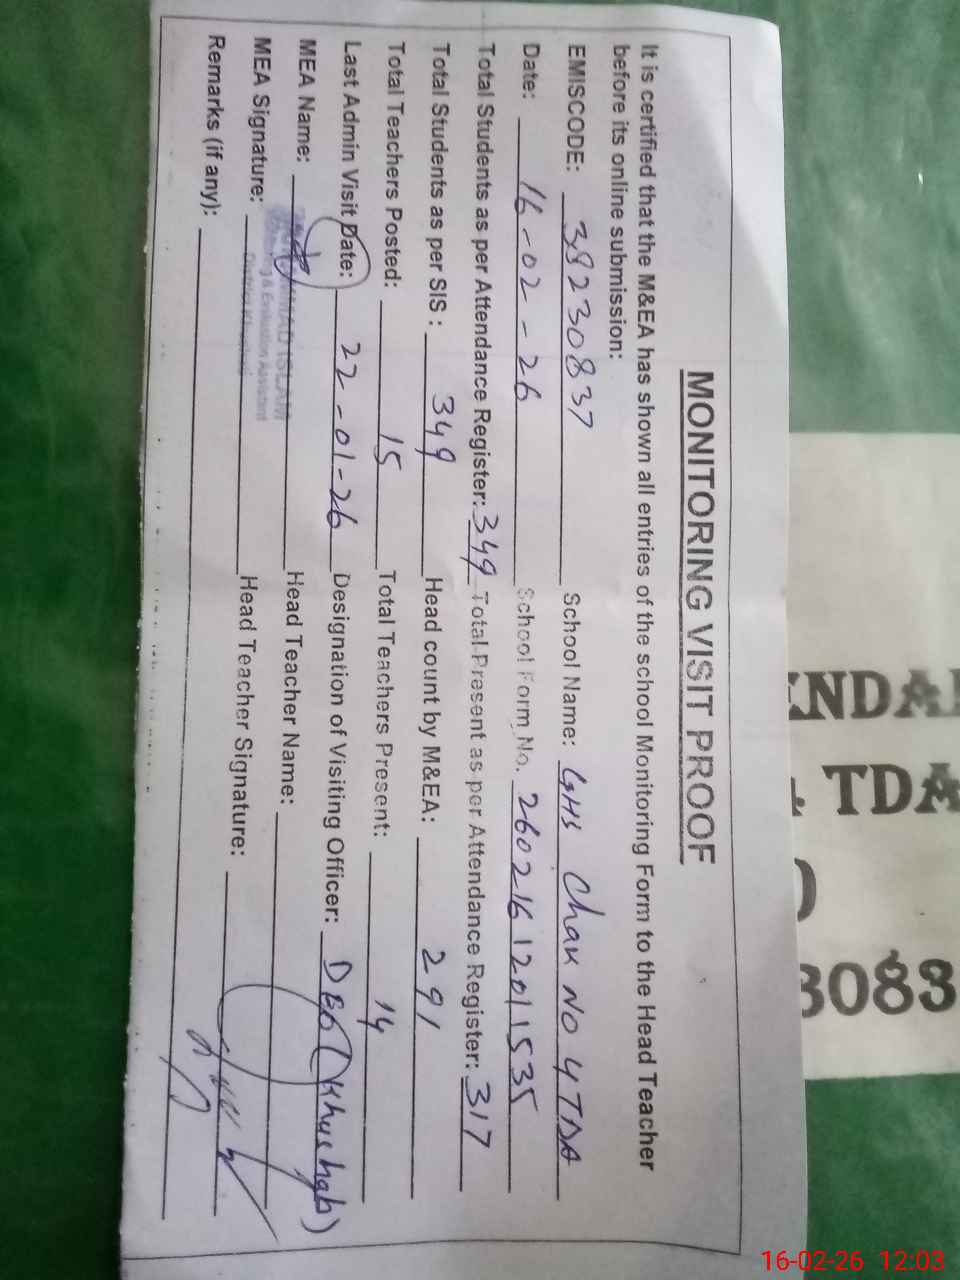 MONITORING VISIT PROOF
It is certified that the M&EA has shown all entries of the school Monitoring Form to the Head Teacher
before its online submission:
EMISCODE: 38230837 School Name: GHS Chak No 4 TDA
Date: 16-02-26 School Form No. 26021612011535
Total Students as per Attendance Register: 349 Total Present as per Attendance Register: 317
Total Students as per SIS : 349 Head count by M&EA: 291
Total Teachers Posted: 15 Total Teachers Present: 14
Last Admin Visit Date: 22-01-26 Designation of Visiting Officer: DEO (Khushab)
MEA Name: Head Teacher Name:
MEA Signature: Head Teacher Signature:
Remarks (if any):
ISLAM
& Evaluation Assistant
ENDA
TDA
3083
16-02-26 12:03